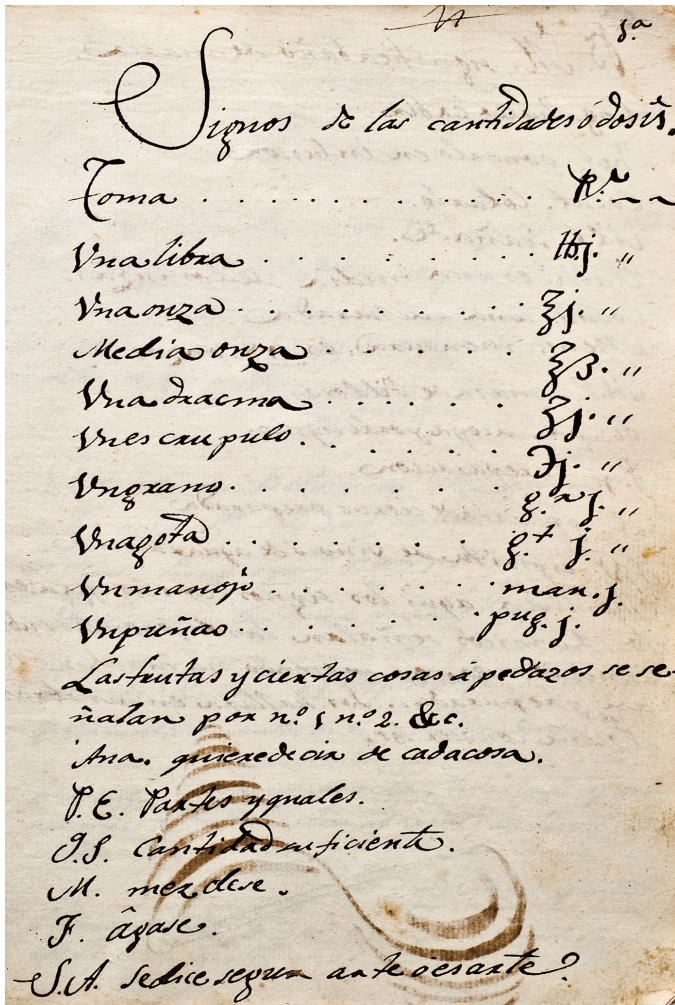 Signos de las cantidades ó dosis.
Toma . . . . . . . . . . . R.e
Vna libra . . . . . . . . . . ℔j. „
Vna onza . . . . . . . . . . ℥j. „
Media onza . . . . . . . ℥ß. „
Vna dracma . . . . . . ʒj. „
Vn escrupulo . . . . . . ℈j. „
Vn grano . . . . . . . . g.n j. „
Vna gota . . . . . . . . g.t j. „
Vn manojo . . . . . . . man. j.
Vn puñao . . . . . . . pug. j.
Las frutas y ciertas cosas á pedazos se se-
ñalan por n.o 1 n.o 2. &c.
Ana. quiere decir de cada cosa.
P.E. Partes yguales.
Q.S. Cantidad suficiente.
M. mezclese.
F. âgase.
S.A. se dice segun arte